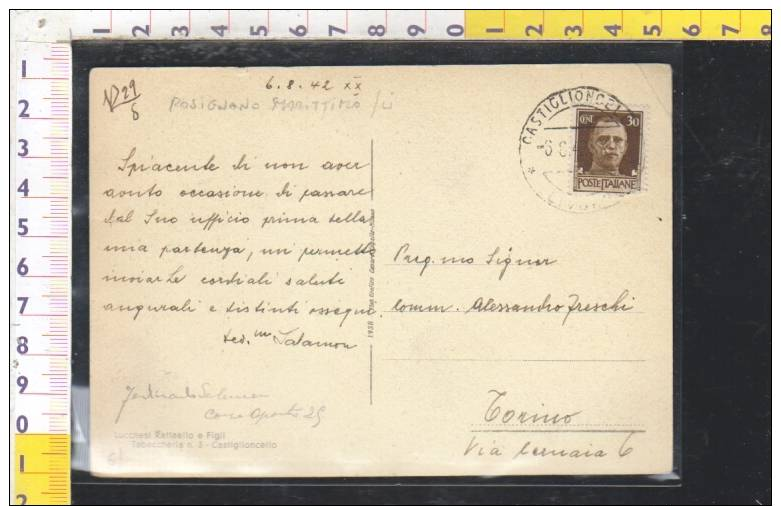 6.8.42 XX
ROSIGNANO MARITTIMO / Li
CASTIGLIONCEL
CENT 30
POSTE ITALIANE
Spiacente di non aver
avuto occasione di passare
dal Suo ufficio prima della
mia partenza, mi permetto
inviarLe cordiali saluti
augurali e distinti ossequi.
Salamon
Preg.mo Signor
Comm. Alessandro Freschi
Torino
Via Cernaia 6
Corso Oporto 25
Lucchesi Raffaello e Figli
Tabaccheria n. 3 - Castiglioncello
1938